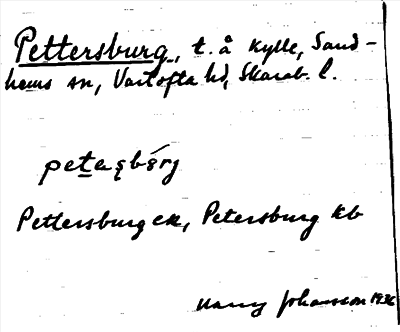 Pettersburg, t. å Kylle, Sand-
hems sn, Vartofta hd, Skarab. l.
petaʂbörj
Pettersburg ek, Petersburg kb
Harry Johansson 1936